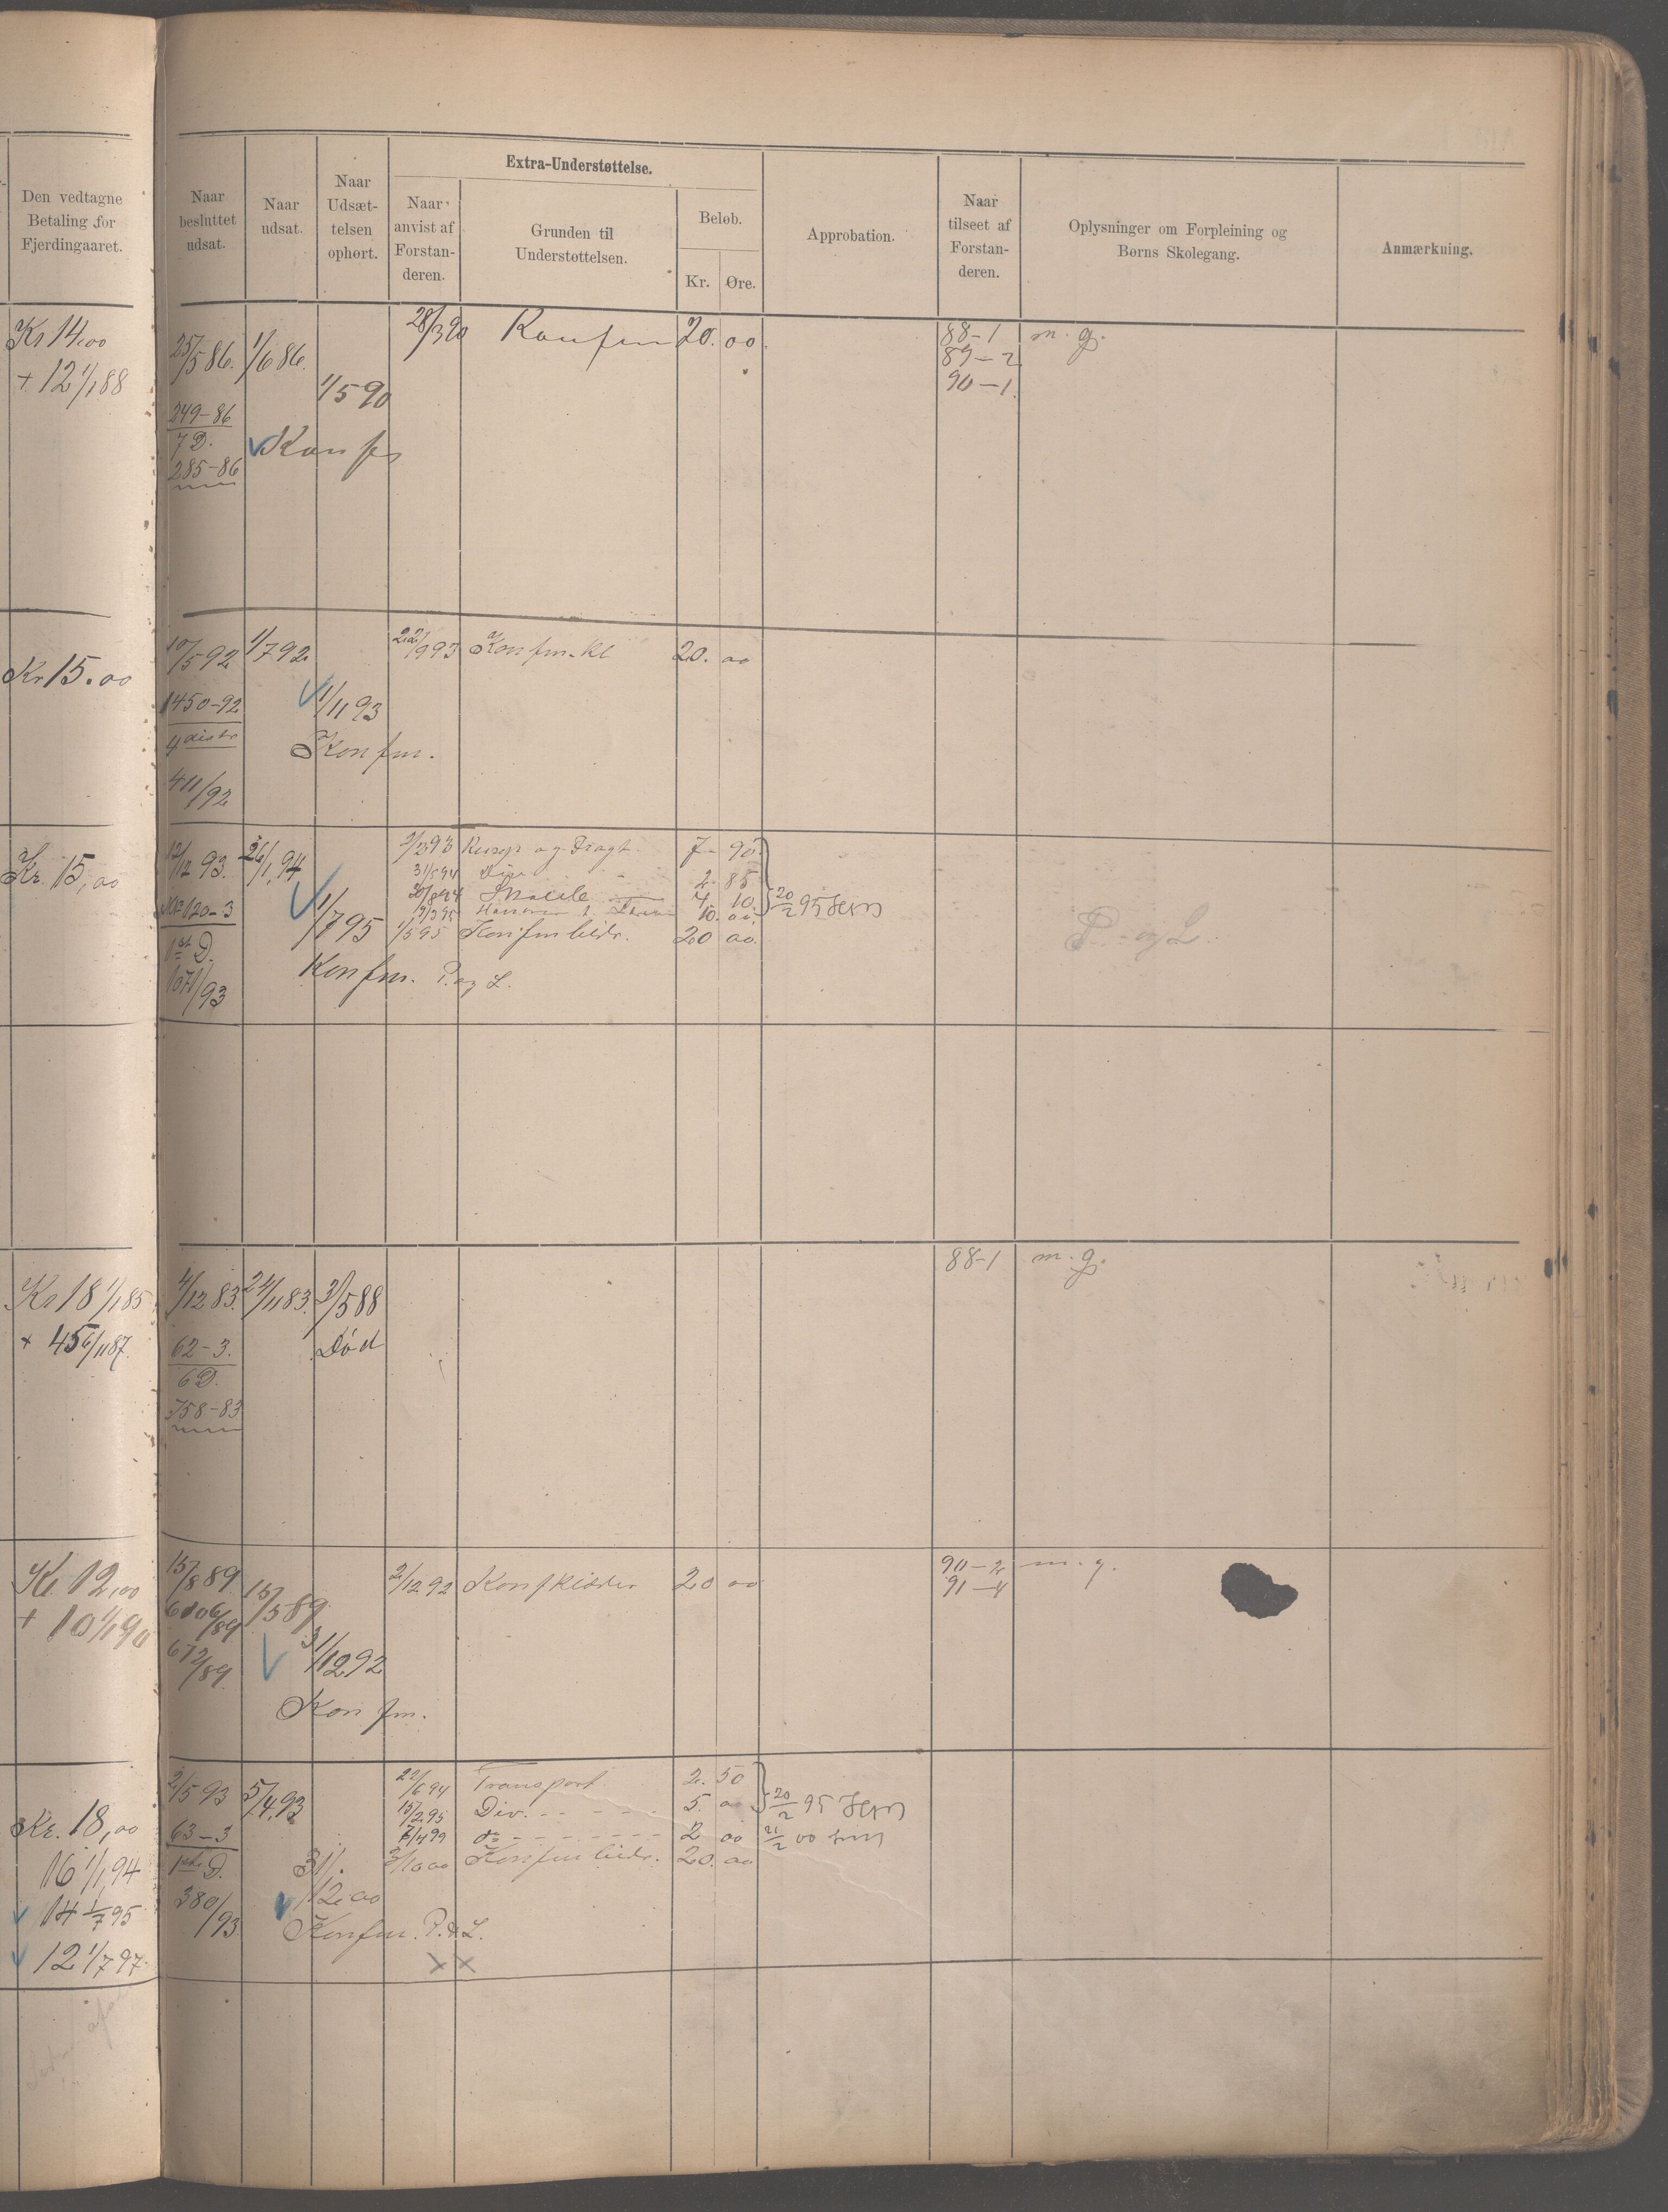 Den vedtagne
Betaling for
Fjerdingaaret.
Naar
besluttet
udsat.
Naar
udsat.
Naar
Udsæt-
telsen
ophørt.
Extra-Understøttelse.
Naar
anvist af
Forstan-
deren.
Grunden til
Understøttelsen.
Beløb.
Kr. Øre.
Approbation.
Naar
tilseet af
Forstan-
deren.
Oplysninger om Forpleining og
Børns Skolegang.
Anmærkning.
Kr 14,00
+ 12 1/1 88
25/5 86. 1/6 86.
1/5 90
249-86
7 D.
285-86
Konf
28/3 90 Konfm 20. 00.
88-1 m. g.
89-2
90-1.
Kr 15.00
10/5 92 1/7 92
1450-92
4 distr
411/92
1/11 93
Konfm.
22/9 93 Konfm. Kl 20. 00
Kr. 15,00
12/12 93. 26/1 94
120-3
1st D.
1071/93
1/7 95
Konfm. P. og L.
og Fragt. 7. 90
31/5 94 Div. 2. 85
4 10
10. 00
1/5 95 Konfm klædr. 20 00.
20/2 95
P. og L
Kr 18 1/1 85
+ 45 6/11 87
4/12 83. 24/11 83. 3/5 88
Død
62-3.
6 D.
758-83
88-1 m. g.
Kr. 12,00
+ 10 1/1 90
15/8 89
15/5 89
672/89
31/12 92
Konfm.
2/12 92 Konfklæder 20 00
90-2 m. g.
91-4
Kr. 18,00
16 1/1 94
14 1/7 95
12 1/7 97
2/5 93 5/4 93
63-3
1ste D.
380/93
31/12 00
Konfm. P. & L.
22/6 94 Transport 2. 50
15/2 95 Div. - - - - 5. 00
7/4 99 do - - - - - 2 00
3/10 00 Konfm klædr. 20. 00
20/2 95
21/2 00